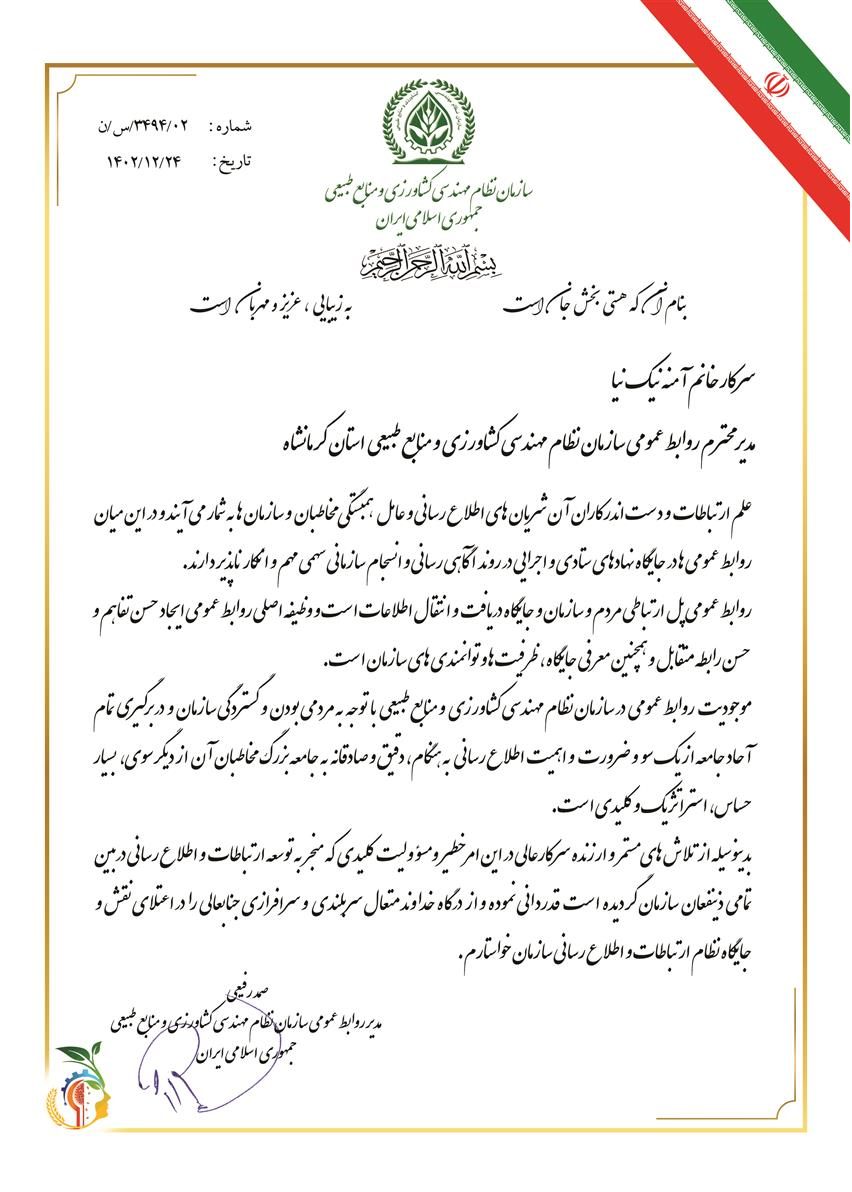 شماره: ۳۴۹۴/۰۲/س/ن
تاریخ: ۱۴۰۲/۱۲/۲۴
سازمان نظام مهندسی کشاورزی و منابع طبیعی
جمهوری اسلامی ایران
بسم الله الرحمن الرحیم
بنام آن که هستی بخش جان است به زیبایی، عزیز و مهربان است
سرکار خانم آمنه نیک نیا
مدیر محترم روابط عمومی سازمان نظام مهندسی کشاورزی و منابع طبیعی استان کرمانشاه
علم ارتباطات و دست اندرکاران آن شریان های اطلاع رسانی و عامل همبستگی مخاطبان و سازمان ها به شمار می آیند و در این میان
روابط عمومی ها در جایگاه نهادهای ستادی و اجرایی در روند آگاهی رسانی و انسجام سازمانی سهمی مهم و انکار ناپذیر دارند.
روابط عمومی پل ارتباطی مردم و سازمان و جایگاه دریافت و انتقال اطلاعات است و وظیفه اصلی روابط عمومی ایجاد حسن تفاهم و
حسن رابطه متقابل و همچنین معرفی جایگاه، ظرفیت ها و توانمندی های سازمان است.
موجودیت روابط عمومی در سازمان نظام مهندسی کشاورزی و منابع طبیعی با توجه به مردمی بودن و گستردگی سازمان و دربرگیری تمام
آحاد جامعه از یک سو و ضرورت و اهمیت اطلاع رسانی به هنگام، دقیق و صادقانه به جامعه بزرگ مخاطبان آن از دیگر سوی، بسیار
حساس، استراتژیک و کلیدی است.
بدینوسیله از تلاش های مستمر و ارزنده سرکار عالی در این امر خطیر و مسؤولیت کلیدی که منجر به توسعه ارتباطات و اطلاع رسانی در بین
تمامی ذینفعان سازمان گردیده است قدردانی نموده و از درگاه خداوند متعال سربلندی و سرافرازی جنابعالی را در اعتلای نقش و
جایگاه نظام ارتباطات و اطلاع رسانی سازمان خواستارم.
صمد رفیعی
مدیر روابط عمومی سازمان نظام مهندسی کشاورزی و منابع طبیعی
جمهوری اسلامی ایران